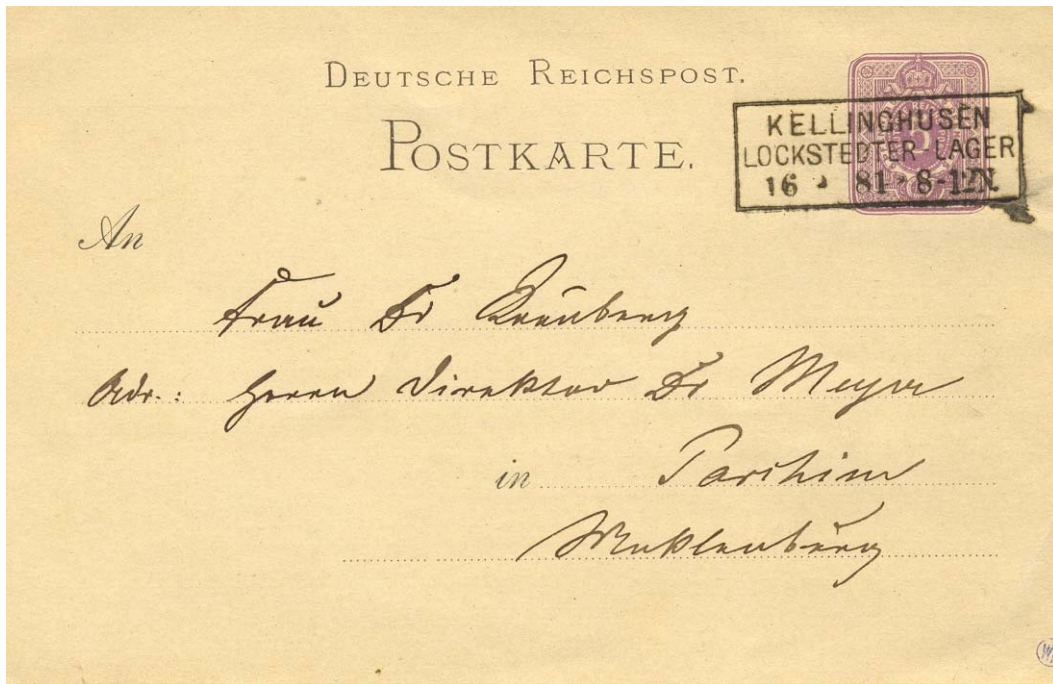 DEUTSCHE REICHSPOST.
POSTKARTE.
KELLINGHUSEN
LOCKSTEDTER-LAGER
16 81 8-12N.
An
Frau Dr
Adr.: Herrn Direktor Dr Meyer
in Parchim
Mecklenburg